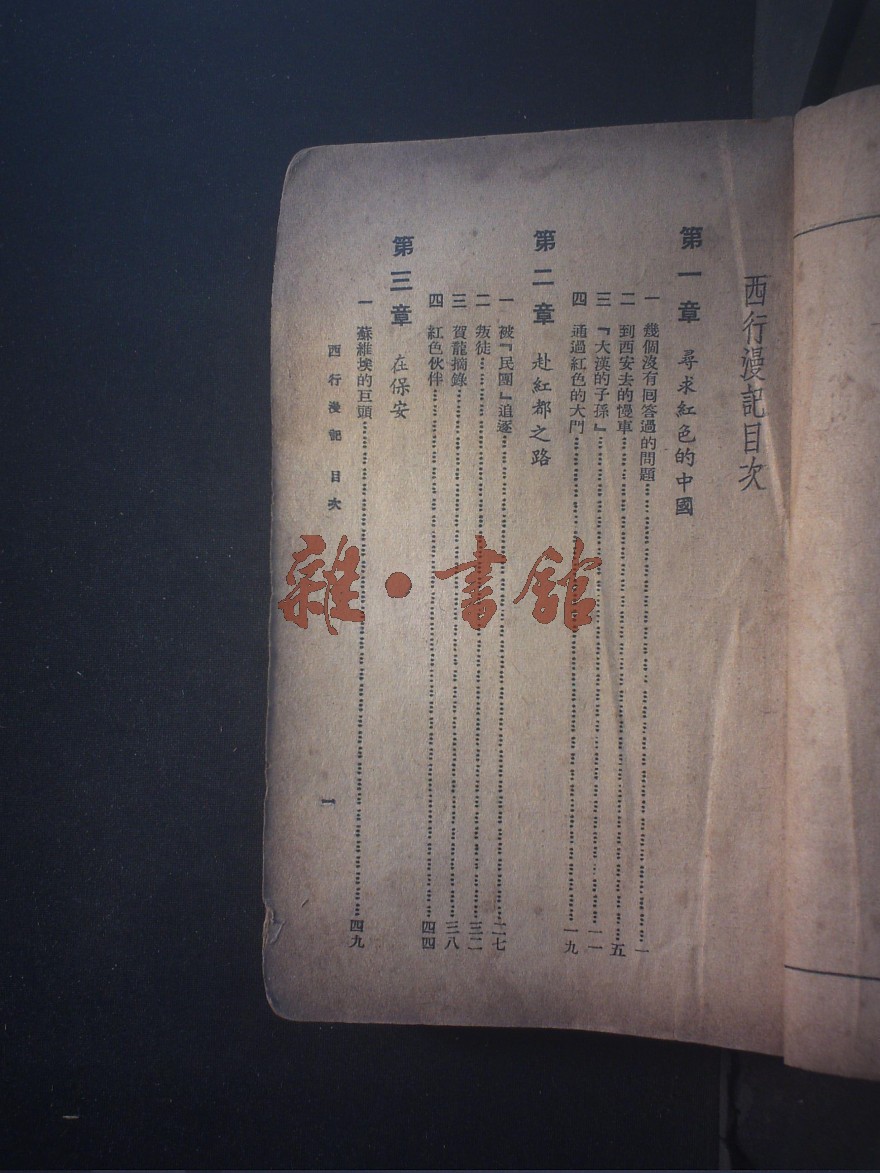 西行漫記目次
第一章 尋求紅色的中國
一 幾個沒有囘答過的問題……一
二 到西安去的慢車……五
三 『大漢的子孫』……一一
四 通過紅色的大門……一九
第二章 赴紅都之路
一 被『民團』追逐……二七
二 叛徒……三二
三 賀龍摘錄……三八
四 紅色伙伴……四四
第三章 在保安
一 蘇維埃的巨頭……四九
西行漫記 目次 一
雜·書館